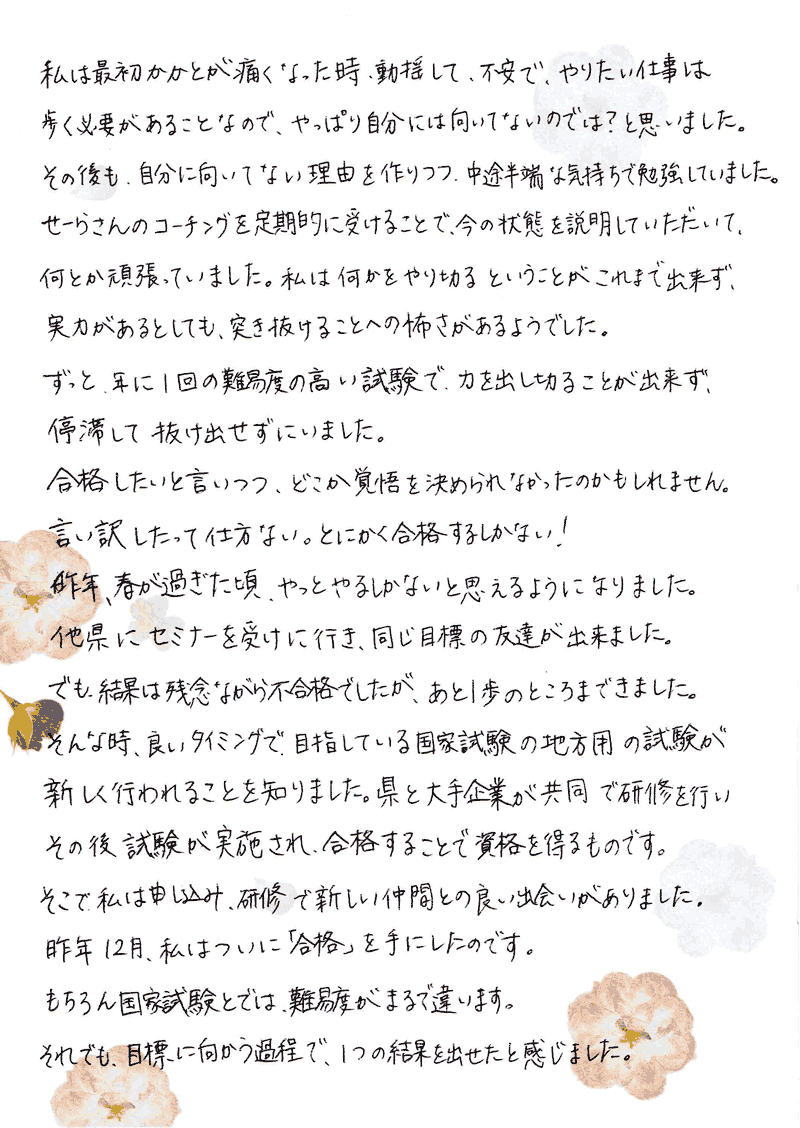 私は最初かかとが痛くなった時、動揺して、不安で、やりたい仕事は
歩く必要があることなので、やっぱり自分には向いてないのでは?と思いました。
その後も、自分に向いてない理由を作りつつ、中途半端な気持ちで勉強していました。
せーらさんのコーチングを定期的に受けることで、今の状態を説明していただいて、
何とか頑張っていました。私は何かをやり切るということがこれまで出来ず、
実力があるとしても、突き抜けることへの怖さがあるようでした。
ずっと、年に1回の難易度の高い試験で、力を出し切ることが出来ず、
停滞して抜け出せずにいました。
合格したいと言いつつ、どこか覚悟を決められなかったのかもしれません。
言い訳したって仕方ない。とにかく合格するしかない!
昨年、春が過ぎた頃、やっとやるしかないと思えるようになりました。
他県にセミナーを受けに行き、同じ目標の友達が出来ました。
でも、結果は残念ながら不合格でしたが、あと1歩のところまできました。
そんな時、良いタイミングで、目指している国家試験の地方用の試験が
新しく行われることを知りました。県と大手企業が共同で研修を行い
その後試験が実施され、合格することで資格を得るものです。
そこで、私は申し込み、研修で新しい仲間との良い出会いがありました。
昨年12月、私はついに「合格」を手にしたのです。
もちろん国家試験とでは、難易度がまるで違います。
それでも、目標に向かう過程で、1つの結果を出せたと感じました。